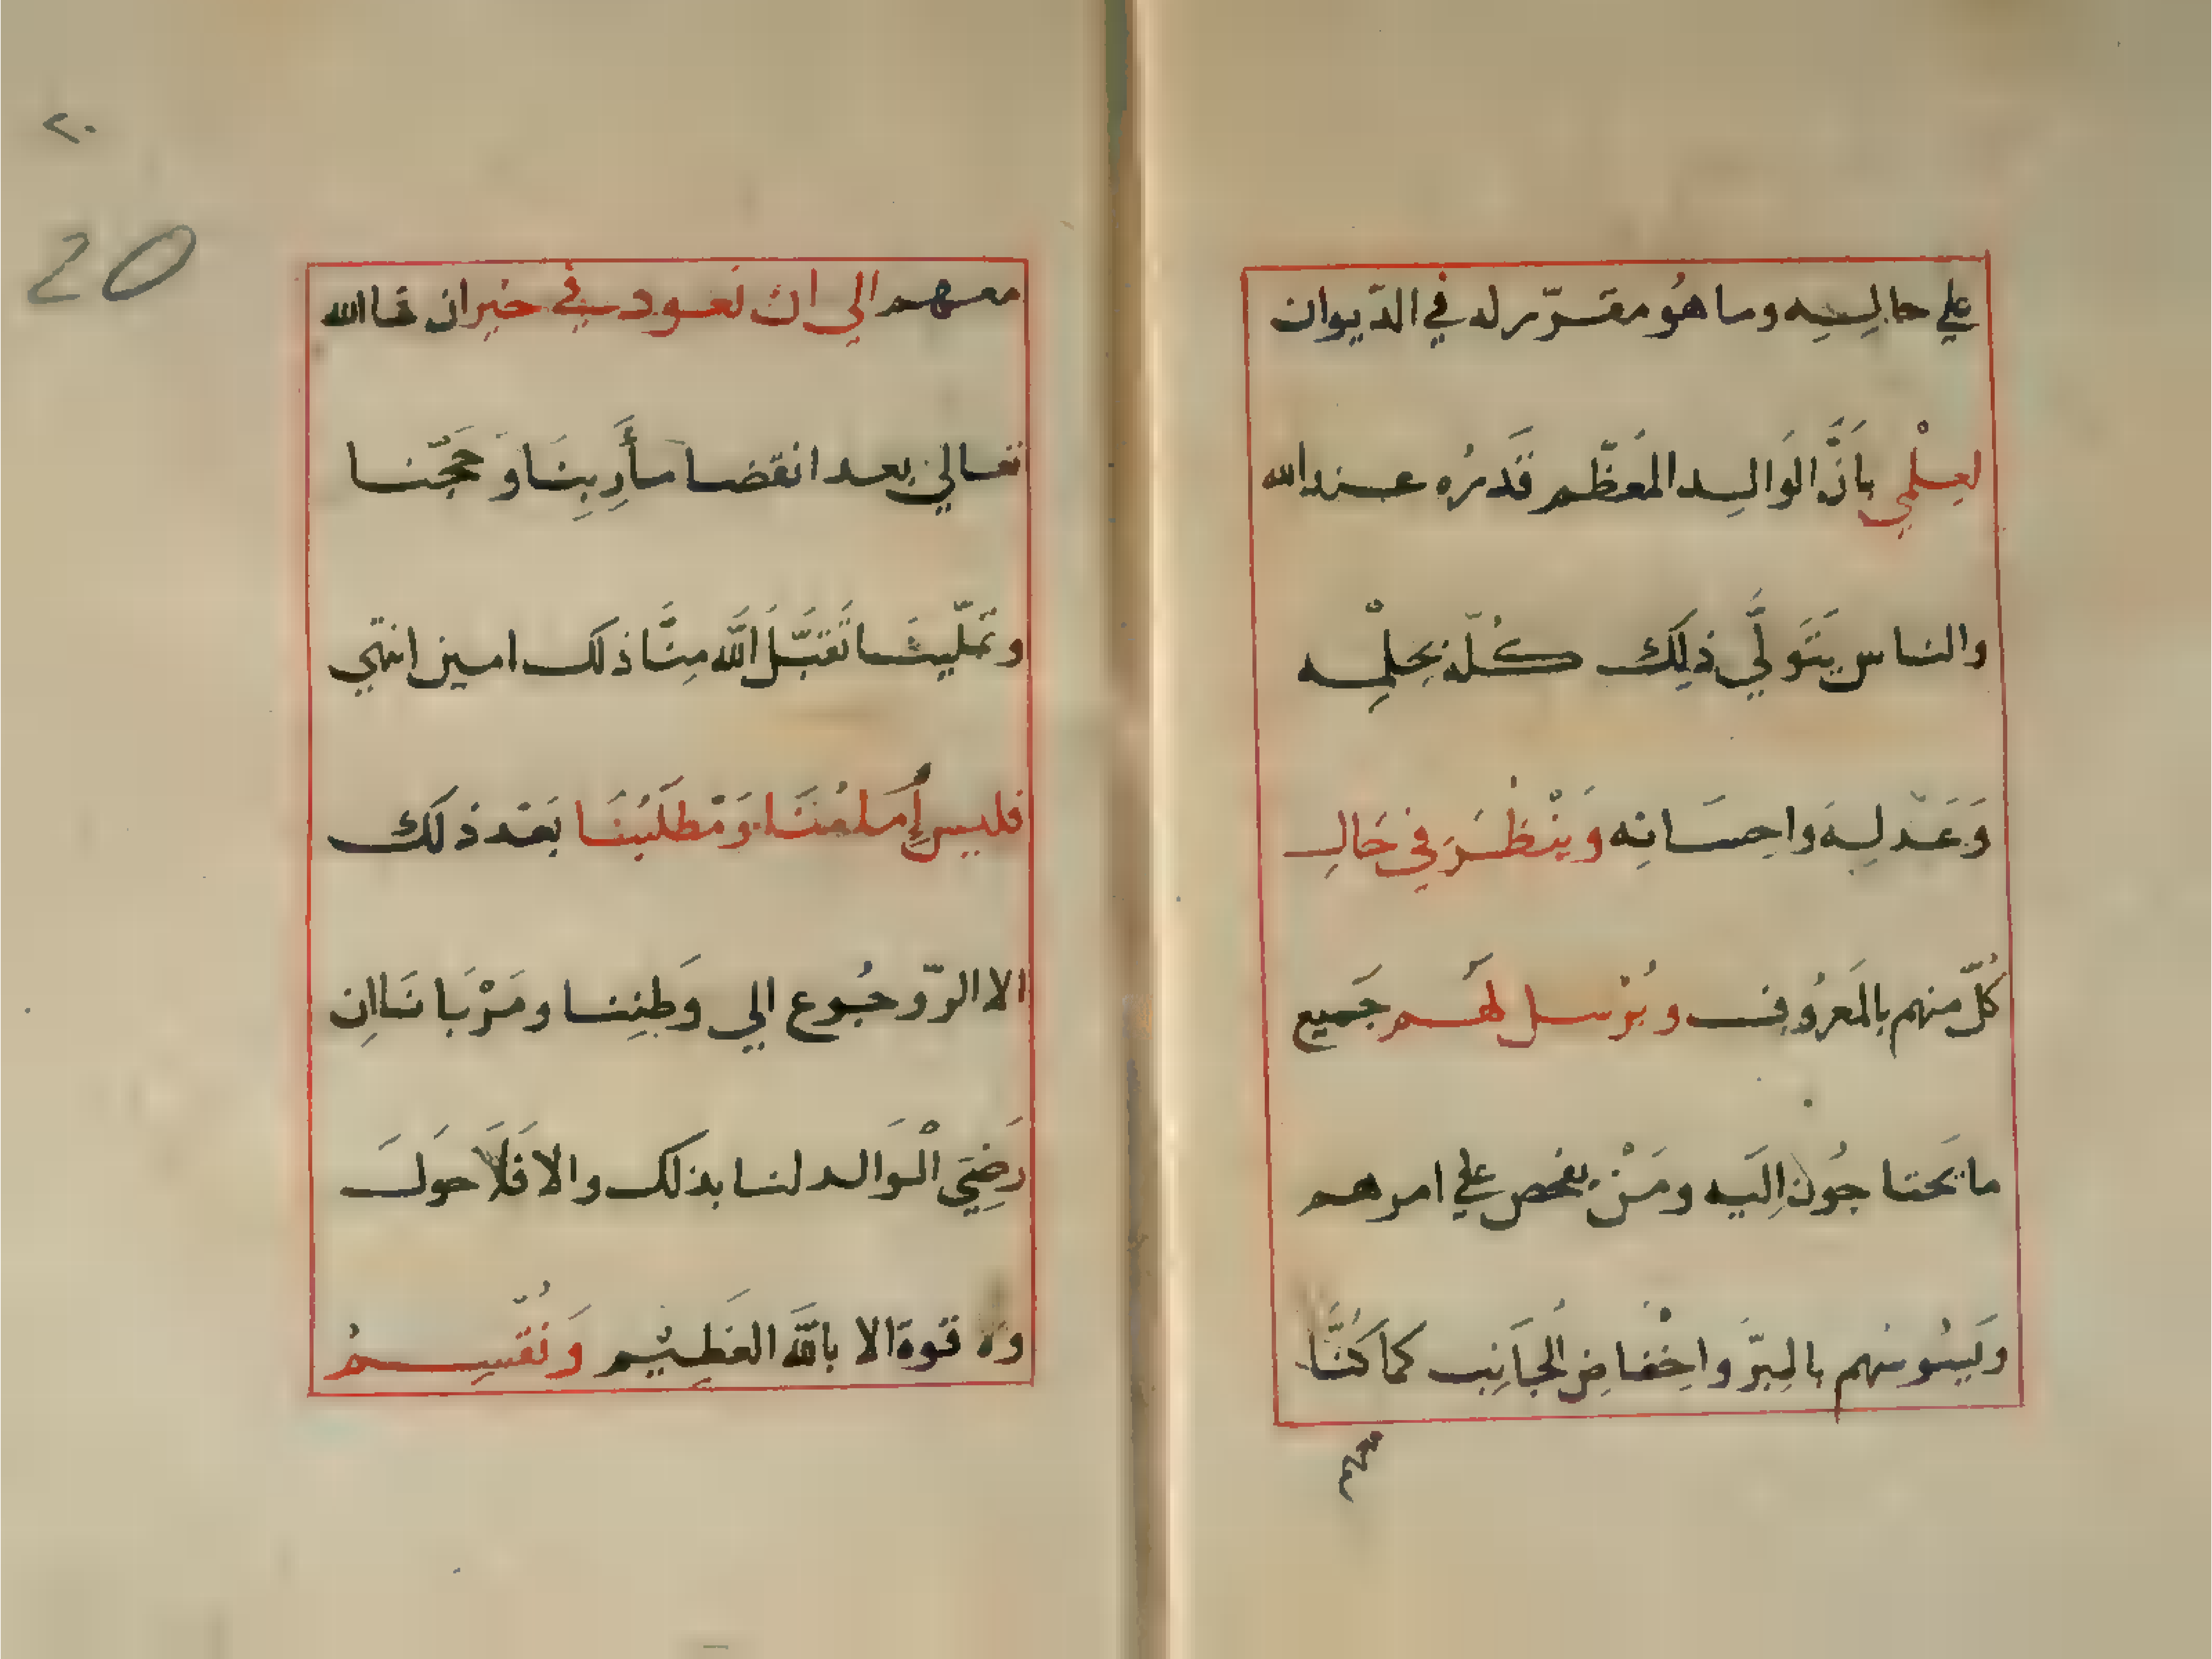 علي حالِه وما هُو مقرّر له في الدّيوان
لعِلْمي بانَّ الوَالِد المعَظّم قَدرُه عند الله
والناس يَتَولَّي ذلِكَ كُلّه بحِلْمِه
وَعَدلِه وَاحِسَانِه وَيَنْظُرَ في حَالِ
كُلّ منهم بالمَعرُوف ويُرْسل لهَم جَميع
ما يَحتاجُون إلَيه ومَنْ يفحص علي امرهم
وَيَسُوسُهم بالبِرّ واخِفْاضِ الجَانِب كما كُنَّا
معهم
٢٠
20
معهم الي ان نَعود في خير ان شا الله
تعالي بعد انقضا مأَرِبِنَا وَحَجّنا
وتملّينا تَقَبَّلَ اللَّه مِنَّا ذلك امين انتهي
فليس إِملعُنَا وَمَطلَبُنَا بَعْد ذلك
الا الرّوجُوع الي وَطِننا ومَرْبَانَا إن
رَضِيَ الْوَالد لنا بذلك والا فَلَا حَولَ
ولا قوة الا باللَّه العَظِيْم وَنُقَسِمُ